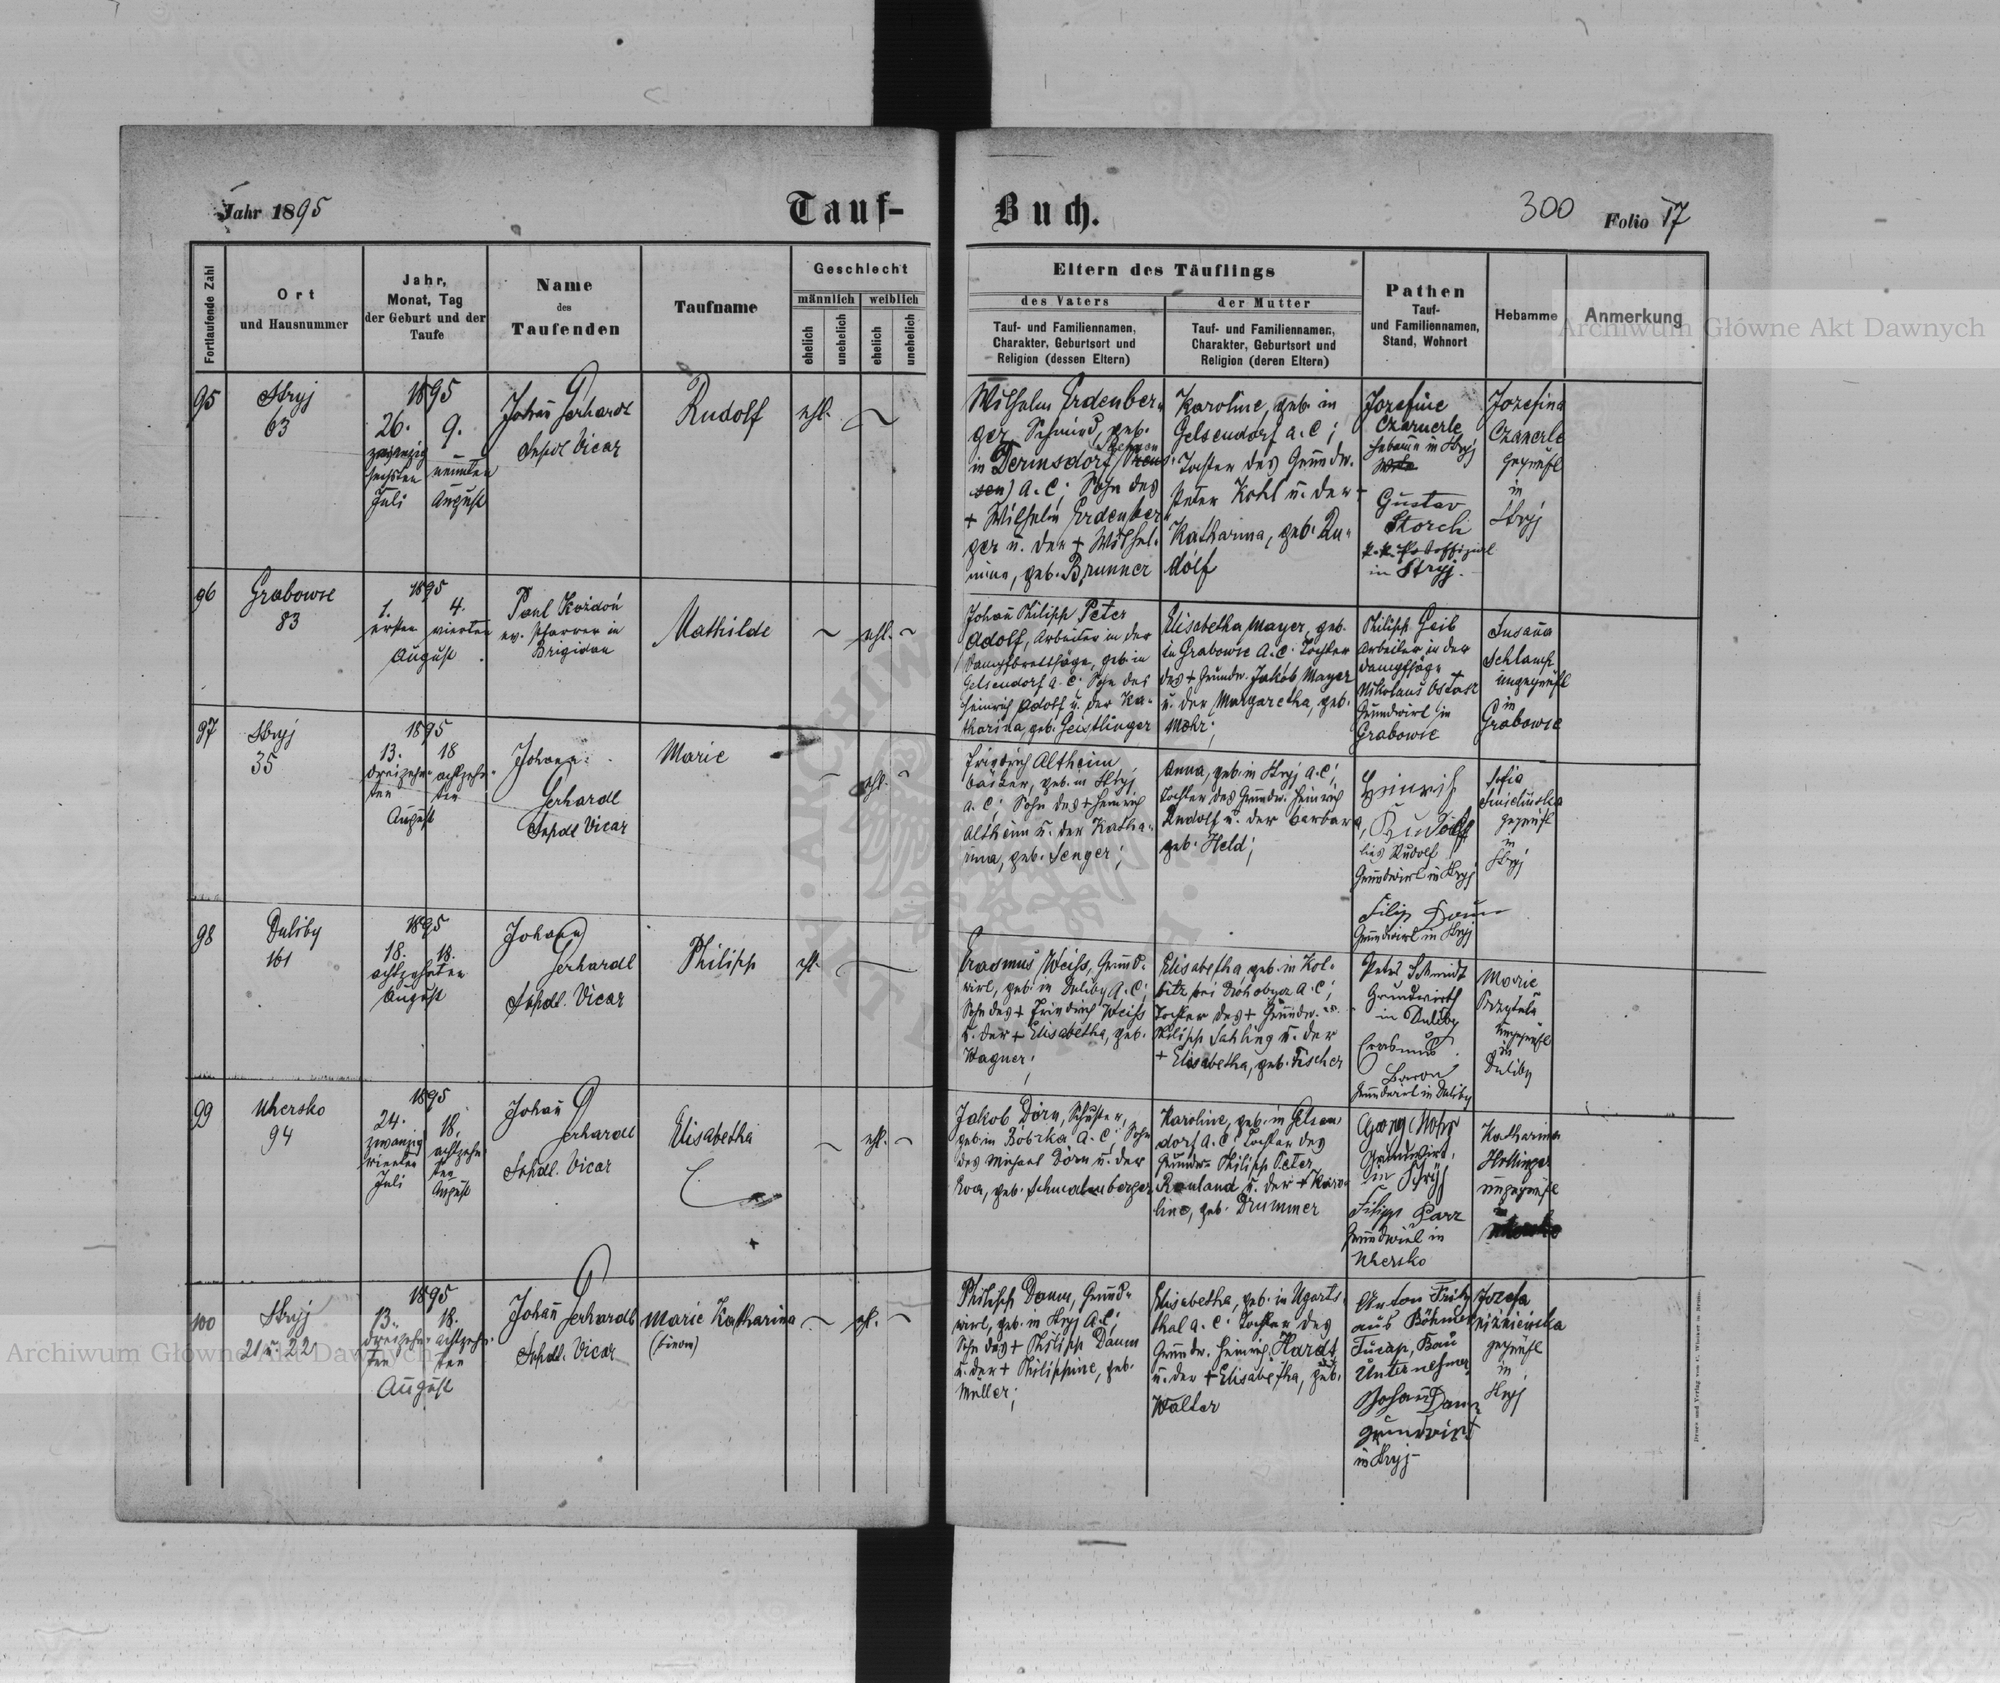 Jahr 1895
Tauf-
Buch.
300
Folio 17
Fortlaufende Zahl
Ort
und Hausnummer
Jahr,
Monat, Tag
der Geburt und der
Taufe
Name
des
Taufenden
Taufname
Geschlecht
männlich
weiblich
ehelich
unehelich
ehelich
unehelich
Eltern des Täuflings
des Vaters
der Mutter
Tauf- und Familiennamen,
Charakter, Geburtsort und
Religion (dessen Eltern)
Tauf- und Familiennamen,
Charakter, Geburtsort und
Religion (deren Eltern)
Pathen
Tauf-
und Familiennamen,
Stand, Wohnort
Hebamme
Anmerkung
95
Stryj
63
1895
26.
zwanzig
sechsten
Juli
9.
neunten
August
Johann Gerhardt
Suptdl. Vicar
Rudolf
ehl.
Wilhelm Erdenber-
ger, Schmied, geb.
in Dermsdorf
A. C; Sohn des
+ Wilhelm Erdenber
ger u. der + Wilhel-
mine, geb. Brunner
Karoline, geb. in
Gelsendorf A. C;
Tochter des Grundw.
Peter Kohl u. der
Katharina, geb. Ru-
dolf
Jozefine
Czanerle
Hebamme in Stryj
Gustav
Storch
k. k. Postoffizial
in Stryj.
Jozefina
Czanerle
geprüft
in
Stryj
96
Grabowce
83
1895
1.
ersten
4.
vierten
August
Paul Kozdoń
ev. Pfarrer in
Brigidau
Mathilde
ehl.
Johann Philipp Peter
Adolf, Arbeiter in der
Dampfbrettsäge, geb. in
Gelsendorf A. C. Sohn des
Heinrich Adolf u. der Ka-
tharina, geb. Geistlinger
Elisabetha Mayer, geb.
in Grabowce A. C. Tochter
des + Grundw. Jakob Mayer
u. der Margaretha, geb.
Mohr;
Philipp Geib
Arbeiter in der
Dampfsäge
Nikolaus
Grundwirt in
Grabowce
Susanna
Schlamp
ungeprüft
in
Grabowce
97
Stryj
35
1895
13.
dreizehn-
ten
18
achtzehn-
ten
August
Johann
Gerhardt
Suptdl. Vicar
Marie
ehl.
Friedrich Altheim
Bäcker, geb. in Stryj
A. C; Sohn des + Heinrich
Altheim u. der Katha-
rina, geb. Senger;
Anna, geb. in Stryj A. C;
Tochter des Grundw. Heinrich
Rudolf u. der Barbara,
geb. Held;
Heinrich
Rudolf
lies Rudolf
Grundwirt in Stryj
Filip Daum
Grundwirt in Stryj
Sofia
geprüft
in
Stryj
98
Duliby
161
1895
18. 18.
achtzehnten
August
Johann
Gerhardt
Suptdl. Vicar
Philipp
ehl.
Erasmus Weiss, Grund-
wirt, geb. in Duliby A. C;
Sohn des + Friedrich Weiss
u. der + Elisabetha, geb.
Wagner;
Elisabetha geb. in Kol-
bitz bei Drohobycz A. C;
Tochter des + Grundw.
Philipp Sahling u. der
+ Elisabetha, geb. Fischer
Peter Schmidt
Grundwirth
in Duliby
Erasmus
Grundwirt in Duliby
Marie
ungeprüft
in
Duliby
99
Uhersko
94
1895
24.
zwanzig
vierten
Juli
18.
achtzehn
ten
August
Johann
Gerhardt
Suptdl. Vicar
Elisabetha
ehl.
Jakob Dorn, Schuster,
geb. in Bóbrka A. C; Sohn
des Michael Dorn u. der
Eva, geb. Schmalenberger
Karoline, geb. in Gelsen-
dorf A. C; Tochter des
Grundw. Philipp Peter
Rauland u. der + Karo-
line, geb. Drummer
Georg Mohr
Grundwirt,
in Stryj
Filipp Parr
Grundwirt in
Uhersko
Katharina
Hollinger
ungeprüft
in
100
Stryj
21 u. 22
1895
13.
dreizehn-
ten
18.
achtzehn-
ten
August
Johann Gerhardt
Suptdl. Vicar
Marie Katharina
(binom)
ehl.
Philipp Daum, Grund-
wirt, geb. in Stryj A. C;
Sohn des + Philipp Daum
u. der + Philippine, geb.
Müller;
Elisabetha, geb. in Ugarts-
thal A. C. Tochter des
Grundw. Heinrich Hardt
u. der + Elisabetha, geb.
Walter
Anton Fritz
aus Böhmen
Bau
Unternehmer
Johann Daum
Grundwirt
in Stryj
Jozefa
Niżniewska
geprüft
in
Stryj
Archiwum Główne Akt Dawnych
Archiwum Główne Akt Dawnych